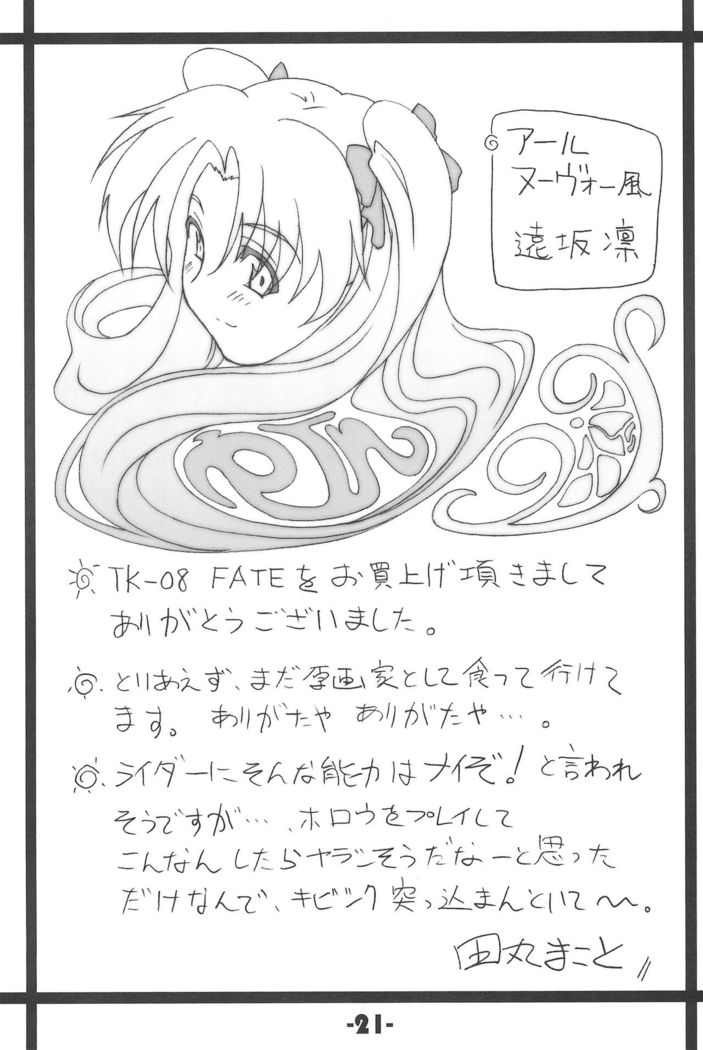 アール
ヌーヴォー風
遠坂凛
RIN
TK-08 FATEをお買上げ頂きまして
ありがとうございました。
とりあえず、まだ原画家として食って行けて
ます。ありがたや ありがたや…。
ライダーにそんな能力はナイぞ!と言われ
そうですが…、ホロウをプレイして
こんなんしたらヤラシそうだなーと思った
だけなんで、キビシク突っ込まんといて〜〜。
田丸まこと
-21-